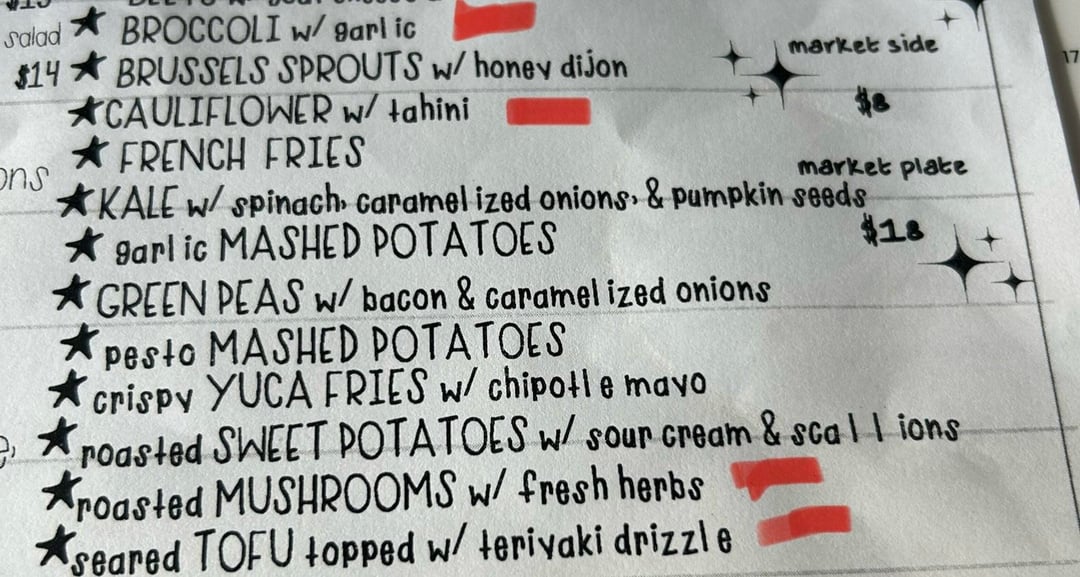 salad ★ BROCCOLI w/ garlic
market side
$14 ★ BRUSSELS SPROUTS w/ honey dijon
17
★ CAULIFLOWER w/ tahini
$8
★ FRENCH FRIES
market plate
ons
★ KALE w/ spinach, caramelized onions, & pumpkin seeds
$18
★ garlic MASHED POTATOES
★ GREEN PEAS w/ bacon & caramelized onions
★ pesto MASHED POTATOES
★ crispy YUCA FRIES w/ chipotle mayo
★ roasted SWEET POTATOES w/ sour cream & scallions
★ roasted MUSHROOMS w/ fresh herbs
★ seared TOFU topped w/ teriyaki drizzle